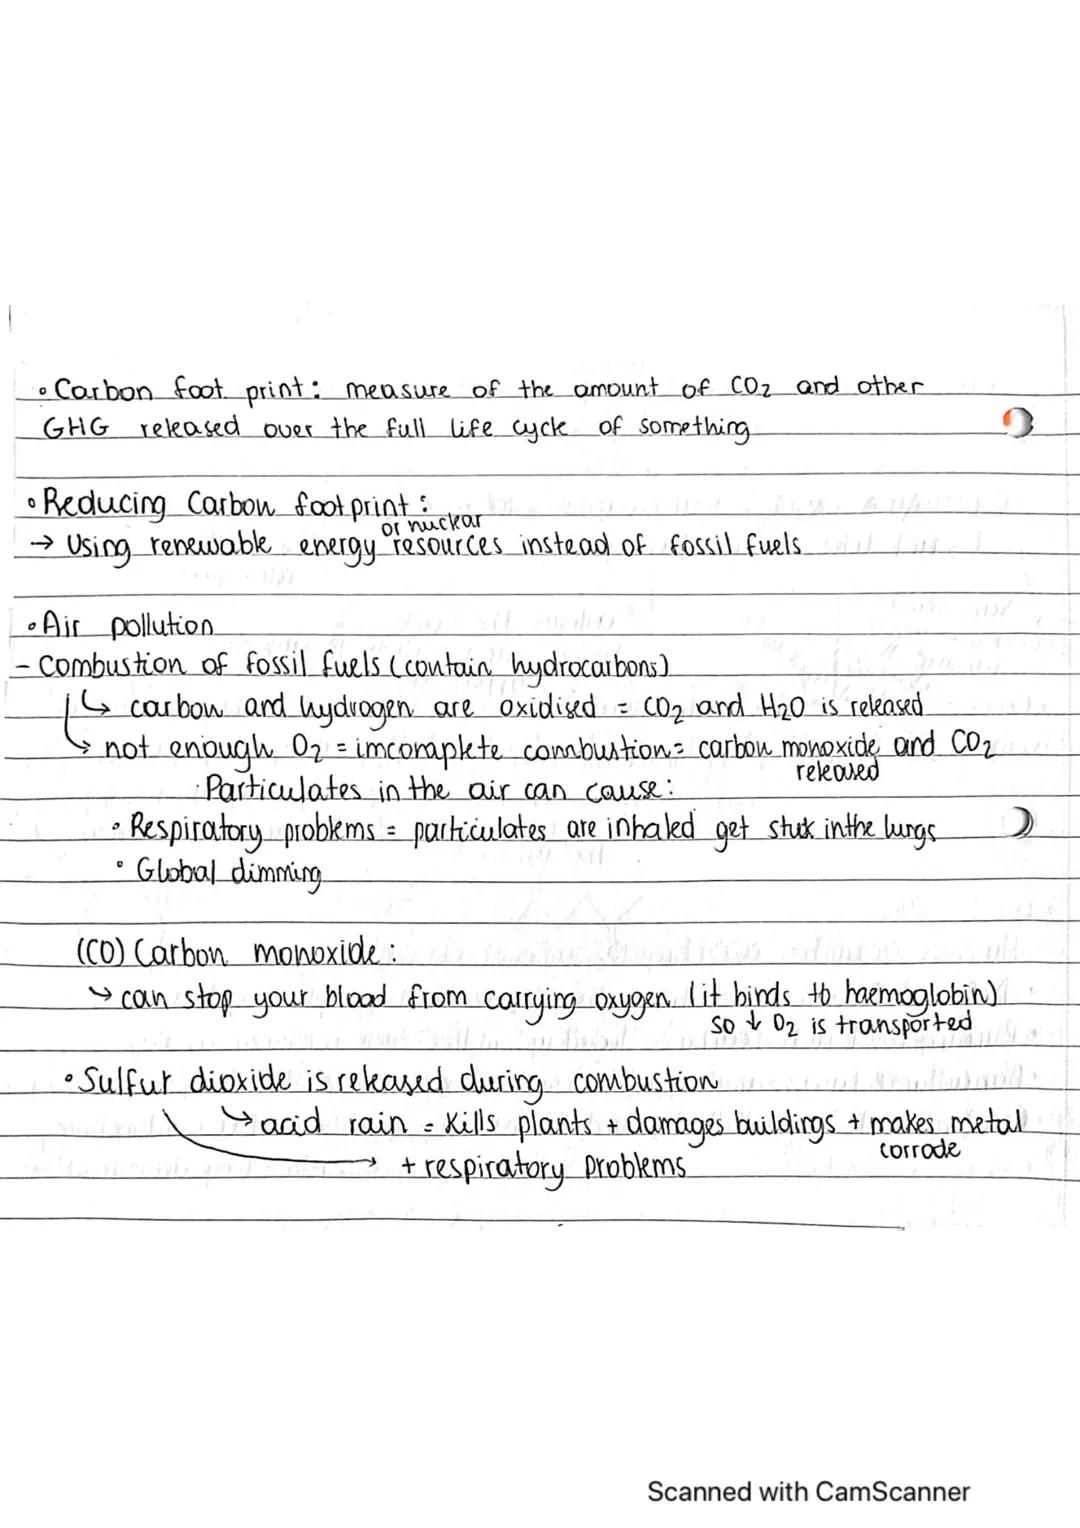 • Carbon foot print: measure of the amount of CO2 and other
GHG released over the full life cycle of something
• Reducing Carbon footprint:
or nuclear
→ Using renewable energy resources instead of fossil fuels
• Air pollution
- Combustion of fossil fuels (contain hydrocarbons)
↳ carbon and hydrogen are oxidised = CO2 and H2O is released
↳ not enough O2 = imcomplete combustion = carbon monoxide and CO2
released
Particulates in the air can cause:
• Respiratory problems = particulates are inhaled get stuk in the lungs
• Global dimming
(CO) Carbon monoxide:
↳ can stop your blood from carrying oxygen (it binds to haemoglobin)
so ↓ O2 is transported
• Sulfur dioxide is released during combustion
↳ acid rain = Kills plants + damages buildings + makes metal
corrode
→ + respiratory problems
Scanned with CamScanner